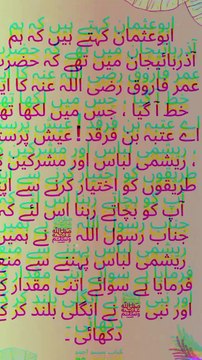 ابوعثمان کہتے ہیں کہ ہم
آذربائیجان میں تھے کہ حضرت
عمر فاروق رضی اللہ عنہ کا ایک
خط آ گیا ، جس میں لکھا تھا
اے عتبہ بن فرقد ! عیش پرستی
، ریشمی لباس اور مشرکین کے
طریقوں کو اختیار کرنے سے اپنے
آپ کو بچاتے رہنا اس لئے کہ
جناب رسول اللہ ﷺ نے ہمیں
ریشمی لباس پہننے سے منع
فرمایا ہے سوائے اتنی مقدار کے
اور نبی ﷺ نے انگلی بلند کر کے
دکھائی ۔